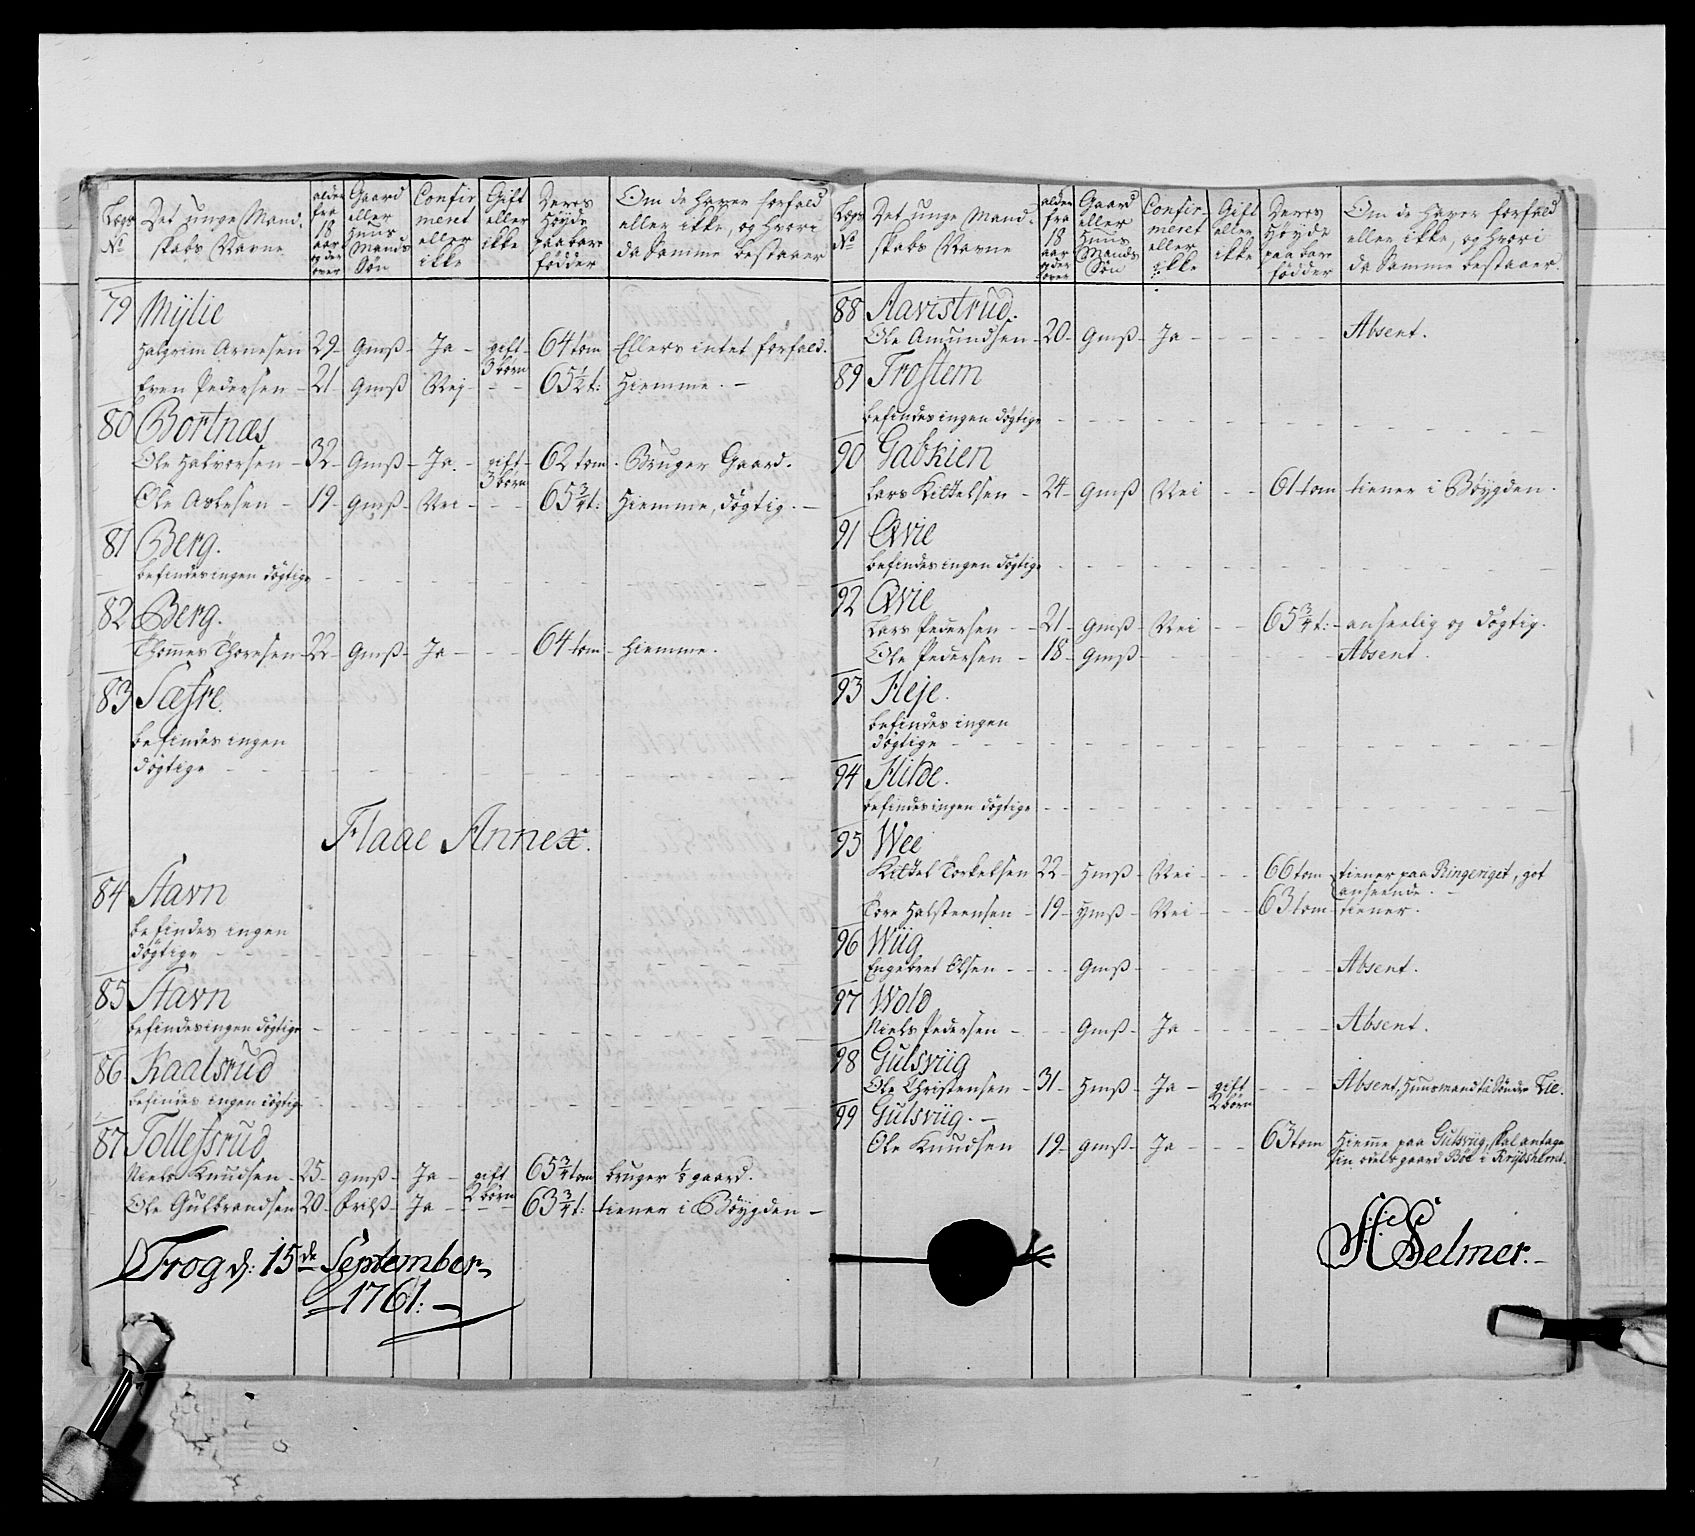 Lægs No | Det unge Mandskabs Navne | alder fra 18 aar og der over | Gaard eller Huus Mands Søn | Confirmeret eller ikke | Gift eller ikke | Deres Høyde paa bare födder | Om de haver forfald eller ikke, og hvori da Samme bestaaer
79 Mÿlie
Halgrim Arnesen 29 - Gmß - Ja - gift 3 børn - 64 tom - Ellers intet forfald.
Even Pedersen - 21 - Gmß - Nej - - - 65 1/2 t: Hiemme. -
80 Bortnæs
Ole Halvorsen - 32 - Gmß - Ja. - gift 3 børn - 62 tom. Bruger Gaard.
Ole Aslesen - 19 - Gmß - Nei - - - 65 3/4 t: Hiemme, døgtig. -
81 Berg.
befindes ingen døgtige - - -
82 Berg.
Thomes Thoresen - 22 - Gmß - Ja - - - 64 tom - Hiemme.
83 Sæfre.
befindes ingen
døgtige - - -
Flaae Annex.
84 Stavn
befindes ingen
døgtige - - -
85 Stavn
befindes ingen døgtige - - -
86 Kaalsrud
befindes ingen døgtige - - -
87 Tollefsrud
Niels Knudsen - 25 - gmß - Ja - gift 2 børn 65 3/4 tom bruger 1/2 gaard.
Ole Gulbrandsen 20 - Frilß - Ja - - - 63 3/4 t: tiener i Bøygden -
Trog d: 15de September
1761. -
Lægs No | Det unge Mandskabs Navne | alder fra 18 aar og der over | Gaard eller Huus Mands Søn | Confirmeret eller ikke | Gift eller ikke | Deres Høyde paa bare födder | Om de haver forfald eller ikke, og hvori da Samme bestaaer.
88 Aavistrud.
Ole Amundsen - 20 - Gmß - Ja - - - - Absent.
89 Trostem
befindes ingen døgtige - - -
90 Gabkien
Lars Kittelsen - 24 - Gmß - Nei - - 61 tom - tiener i Bøygden.
91 Qvie
befindes ingen døgtige - - -
92 Qvie
Lars Pedersen - - 21 - Gmß - Nei - - 65 3/4 t: - anseelig og døgtig.
Ole Pedersen - 18 - Gmß - - - - Absent.
93 Heje.
befindes ingen
døgtige - - -
94 Hilde.
befindes ingen døgtige - - -
95 Wee
Kittel Torkelsen 22 - Hmß - Nei - - 66 tom tiener paa Ringeriget, got
anseende. -
Tore Halsteensen - 19 - Hmß - Nei - - 63 tom - tiener.
96 Wiig
Engebret Olsen - - - Gmß - - - - Absent.
97 Wold
Niels Pedersen - - - Gmß - Ja - - - - Absent.
98 Gulsviig
Ole Christensen - 31 - Hmß - Ja - gift 2 børn - - Absent, Huusmand til Sønder Lie.
99 Gulsviig. -
Ole Knudsen 19 - gmß - Ja - - - 63 tom Hiemme paa Gulsviig, skal antage
sin odels gaard Böe i
H Selmer. -